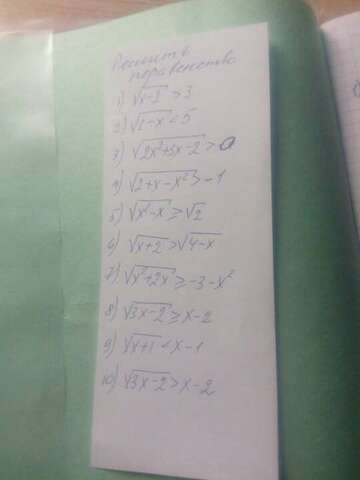 Решить
неравенство
1) √x-2 > 3
2) √1-x < 5
3) √2x²+5x-2 > 0
4) √2+x-x² > -1
5) √x²-x ≥ √2
6) √x+2 > √4-x
7) √x²+2x ≥ -3-x²
8) √3x-2 ≥ x-2
9) √x+1 < x-1
10) √3x-2 > x-2